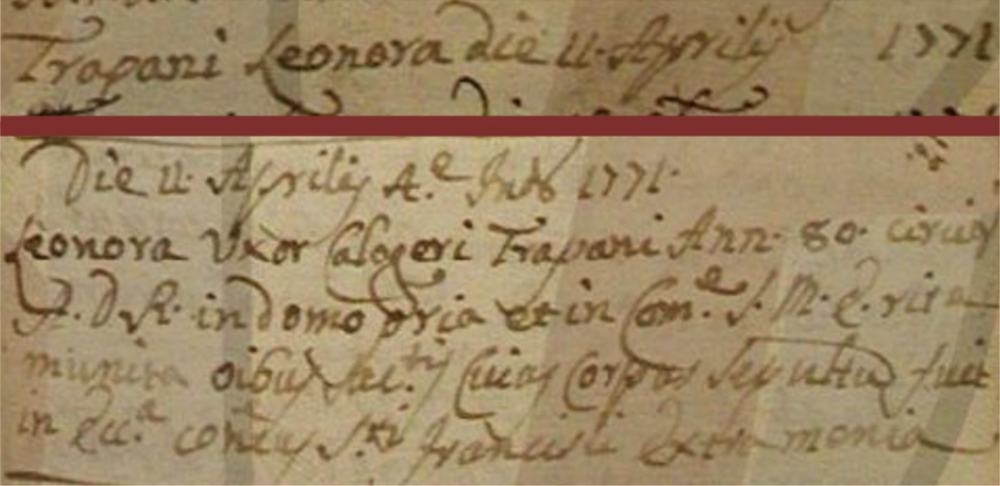 Trapani Leonora die 11. Aprilis 1771
Die 11. Aprilis 4.e Inds 1771.
Leonora Uxor Calogeri Trapani Ann. 80. circis
A. D. R. in domo pria et in Com.e S. M. E. rite
munita oibus sac.tis Cuius Corpus sepultus fuit
in ecc.a contus S.ti Francisci extra menia